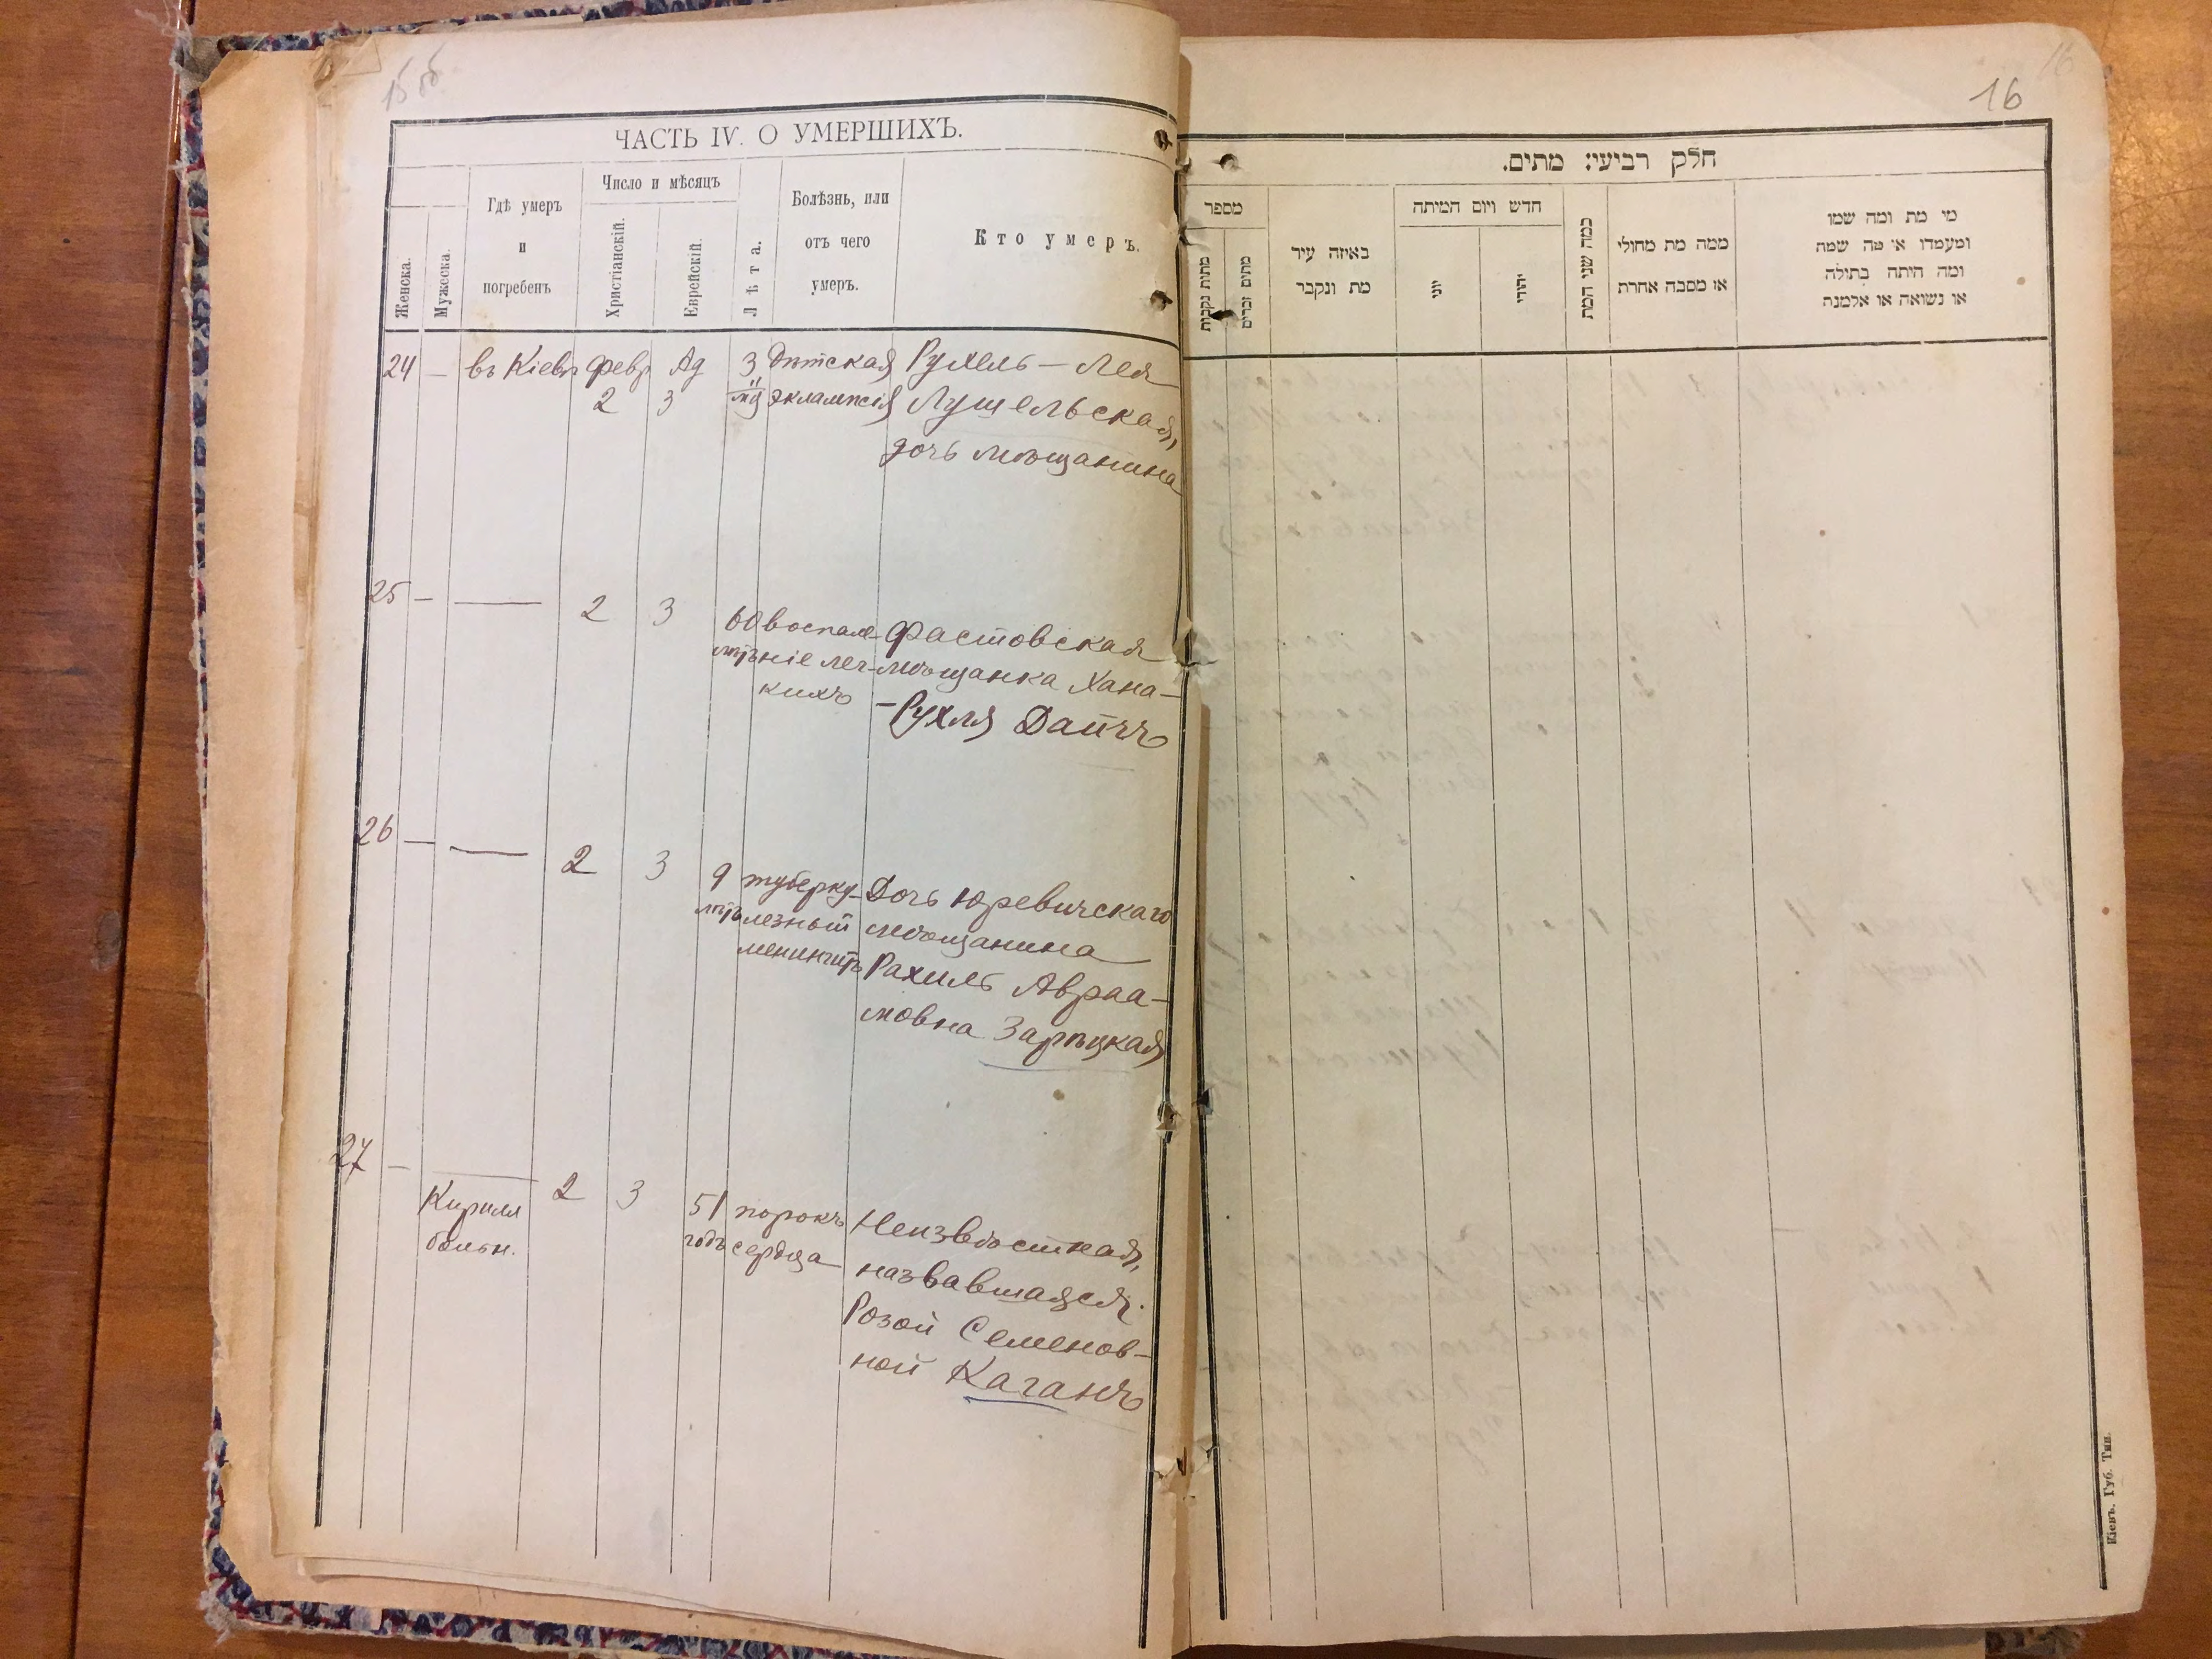 15 об
ЧАСТЬ IV. О УМЕРШИХЪ.
Женска.
Мужеска.
Гдѣ умеръ
и
погребенъ
Число и мѣсяцъ
Христіанскій.
Еврейскій.
Лѣта.
Болѣзнь, или
отъ чего
умеръ.
Кто умеръ.
24 — въ Кіевѣ Февр Ад 3 дѣтская Рухель — Лея
2 3 эклампсія Лушельская,
дочь мѣщанина
25 — — 2 3 60 воспале- Фастовская
лѣтъ ніе лег- мѣщанка Хана-
кихъ -Рухля Дайчъ
26 — — 2 3 9 туберку- Дочь Юревичскаго
лѣтъ лезный мѣщанина
менингитъ Рахиль Авраа-
мовна Зарѣцкая
27 — — 2 3 51 порокъ Неизвѣстная,
Кирилл годъ сердца назвавшаяся
больн. Розой Семенов-
ной Каганъ
16
16
חלק רביעי: מתים.
מספר
מתות נקבות
מתים זכרים
באיזה עיר
מת ונקבר
חדש ויום המיתה
יוני
יהודי
כמה שני המת
ממה מת מחולי
או מסבה אחרת
מי מת ומה שמו
ומעמדו או מה שמה
ומה היתה בתולה
או נשואה או אלמנה
Кіевъ. Губ. Тип.